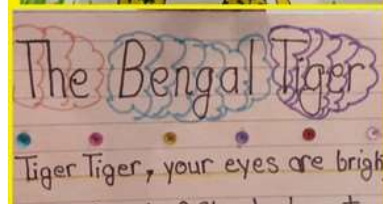 The Bengal Tiger
Tiger Tiger, your eyes are brigh